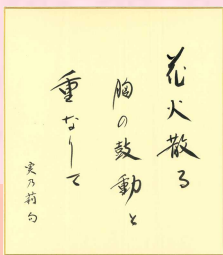 花火散る
胸の鼓動と
重なりて
実乃莉 句